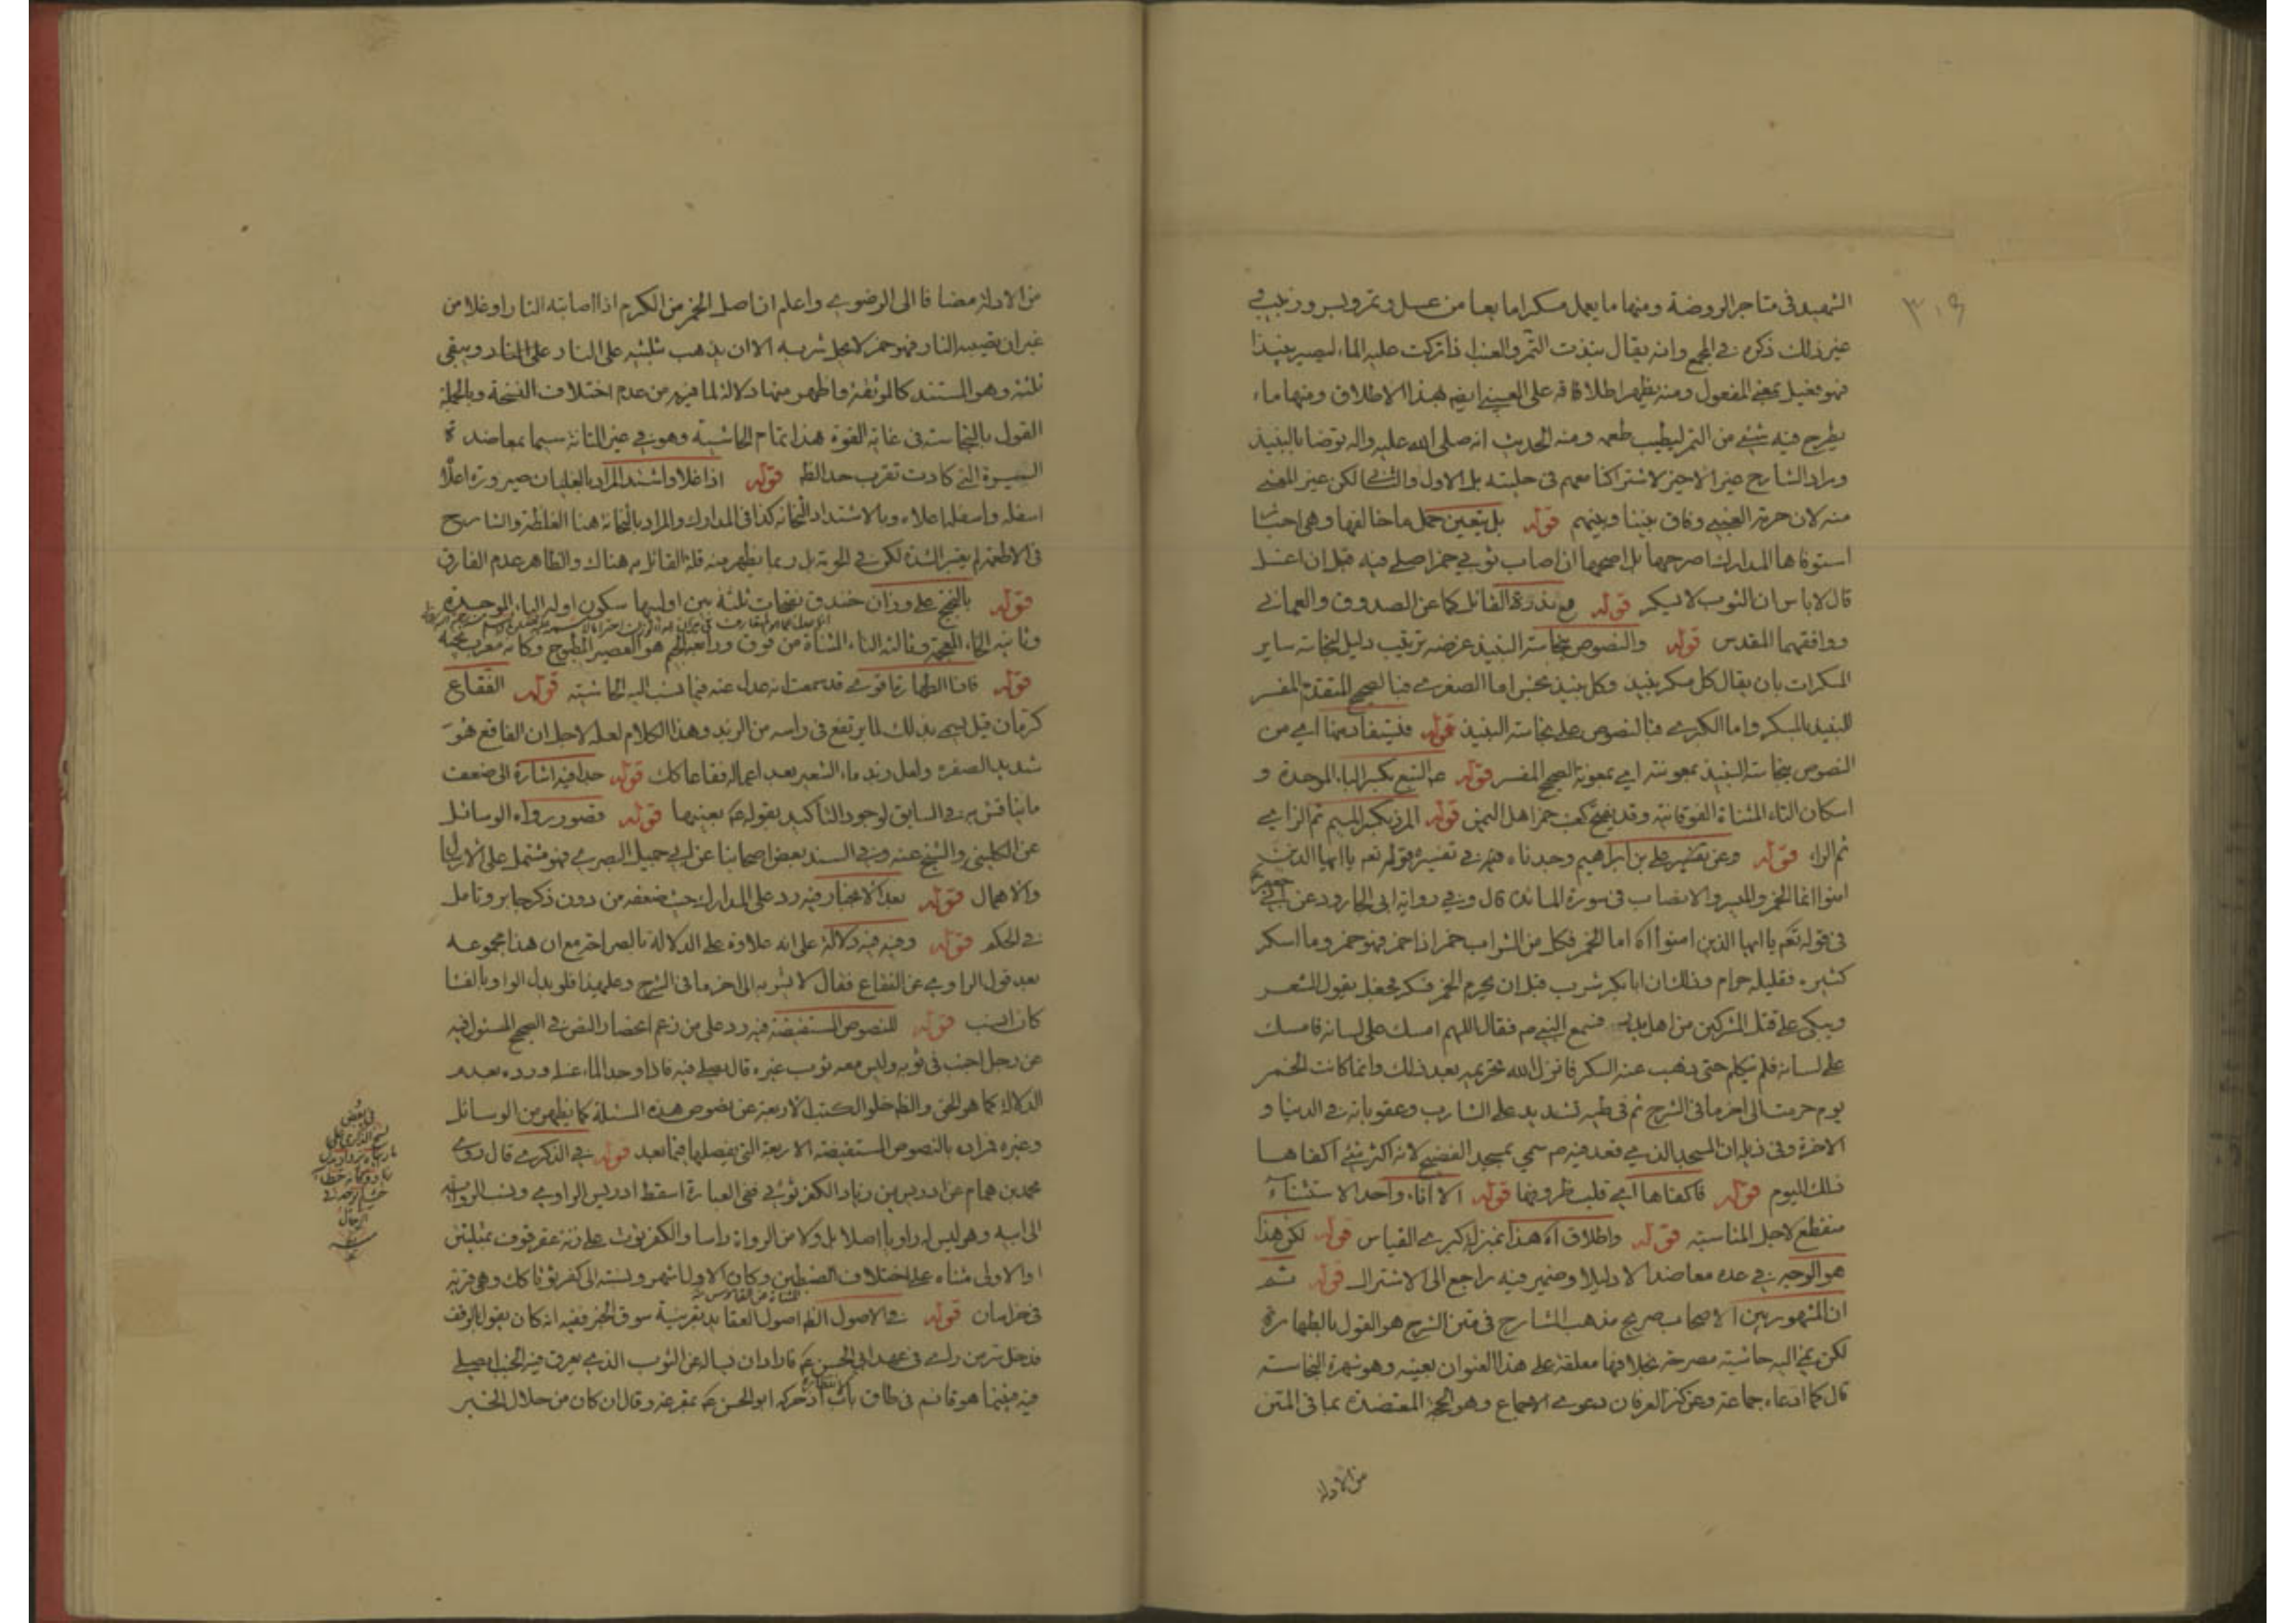 ٣٠٩
الشهيد في متاجر الروضة ومنها ما يعمل مسكرا ما بعا من عسل وتمر وبسر وزبيب في
غير ذلك ذكره في المجمع وانه يقال نبذت التمر والعنب اذا تركت عليه الماء ليصير نبيذا
فهو فعيل بمعنى المفعول ومنه يظهر اطلاقه على العصير ايضا بهذا الاطلاق ومنها ماء
يطرح فيه شيء من التمر ليطيب طعمه ومنه الحديث انه صلى الله عليه واله توضأ بالنبيذ
ومراد الشارح غير الاخير لاشتراكنا معهم في حليته بل الاول والثاني لكن غير العنبي
منه لان حرمة العنبي وفاق بيننا وبينهم قوله بل يتعين حمل ما خالفها وهي اخبار
استوفاها المدارك اصرحها بل اصحها ان اصاب ثوبي خمر اصلي فيه قبل ان اغسل
قال لا باس ان الثوب لا يسكر قوله مع ندرة القائل كما عن الصدوق والعماني
ووافقهما المقدس قوله والنصوص بنجاسة النبيذ غرضه ترتيب دليل لنجاسة ساير
المسكرات بان يقال كل مسكر نبيذ وكل نبيذ نجس اما الصغرى فبالصحيح المتقدم المفسر
للنبيذ بالمسكر واما الكبرى فبالنصوص على نجاسة النبيذ قوله فيستفاد منها اي من
النصوص بنجاسة النبيذ بمعونته اي بمعونة الصحيح المفسر قوله عم البتع بكسر الباء الموحدة و
اسكان التاء المثناة الفوقانية وقد يفتح كعنب خمر اهل اليمن قوله المزر بكسر الميم ثم الزاي
ثم الراء قوله وعن تفسير علي بن ابراهيم وجدناه فيه في تفسيره قوله تعم يا ايها الذين
امنوا انما الخمر والميسر والانصاب في سورة المائدة قال وفي رواية ابي الجارود عن ابي جعفر
في قوله تعم يا ايها الذين امنوا اه اما الخمر فكل من الشراب خمر اذا خمر فهو خمر وما اسكر
كثيره فقليله حرام وذلك ان ابا بكر شرب قبل ان يحرم الخمر فسكر فجعل يقول الشعر
ويبكي على قتلى المشركين من اهل بدر فسمع النبي ص فقال اللهم امسك على لسانه فامسك
على لسانه فلم يتكلم حتى ذهب عنه السكر فانزل الله تحريمه بعد ذلك وانما كانت الخمر
يوم حرمت الى اخر ما في الشرح ثم في طيه تشديد على الشارب وعقوباته في الدنيا و
الاخرة وفي ذيله ان المسجد الذي قعد فيه ص سمي بمسجد الفضيخ لانه اكثر شيء اكفاها
ذلك اليوم قوله فاكفاها اي قلب ظروفها قوله الا اناء واحد الاستثناء
منقطع لاجل المناسبة قوله واطلاق اه هذا بمنزلة كبرى القياس قوله لكن هذا
هو الوجه في عده معاضدا لا دليلا وضمير فيه راجع الى الاشتراك قوله ثم
ان المشهور بين الاصحاب صريح مذهب الشارح في متن الشرح هو القول بالطهارة
لكن نمي اليه حاشية مصرحة بخلافها معلقة على هذا العنوان بعينه وهو شهرة النجاسة
قال كما ادعاه جماعة وعن كنز العرفان دعوى الاجماع وهو الحجة المعتضدة بما في المتن
من الادلة
من الادلة مضافا الى الرضوي واعلم ان اصل الخمر من الكرم اذا اصابته النار او غلا من
غير ان تصيبه النار فهو خمر لا يحل شربه الا ان يذهب ثلثيه على النار على النار ويبقى
ثلثه وهو المستند كالموثقة واظهر منها دلالة لما فيه من عدم اختلاف النسخة وبالجملة
القول بالنجاسة في غاية القوة هذا تمام الحاشية وهو في غير المتانة سيما بمعاضدة
السيرة التي كادت تقرب حد الظ قوله اذا غلا واشتد المراد بالغليان صيرورة اعلاه
اسفله واسفله اعلاه وبالاشتداد الثخانة كذا في المدارك والمراد بالثخانة هنا الغلظة والشارح
في الاطعمة لم يعتبر الشدة لكن في الحرمة بل ربما يظهر منه قلة القائل به هناك والظاهر عدم الفارق
قوله بالبختج على وزان خندق نفخات ثلثة بين اوليها سكون اوله الباء الموحدة
وثانيه الخاء المعجمة وثالثه التاء المثناة من فوق ورابعه الجيم هو العصير المطبوخ وكانه معرب پخته
قوله فاذا الطهارة اقوى قد سمعت انه عدل عنه فيما نسب اليه الحاشية قوله الفقاع
كرمان قيل سمي بذلك لما يرتفع في راسه من الزبد وهذا الكلام لعله لاجل ان الفاقع هو
شديد الصفرة ولعل زبد ماء الشعير بعد اعماله فقاعا كك قوله جدا فيه اشارة الى ضعف
ما يناقش به في السابق لوجود التاكيد بقوله عم بعينها قوله قصور رواه الوسائل
عن الكليني والشيخ عنه وفي السند بعض اصحابنا عن ابي جميل البصري فهو مشتمل على الارسال
والاهمال قوله بعد الانجبار فيه رد على المدارك حيث ضعفه من دون ذكر جابر وتامل
في الحكم قوله وفيه فيه دلالة على انه علاوة على الدلالة بالصراحة مع ان هذا مجموعه
بعد قول الراوي عن الفقاع فقال لا تشربه الى اخر ما في الشرح وعليهذا فلو بدل الواو بالفاء
كان انسب قوله للنصوص المستفيضة فيه رد على من زعم انحصار النص في الصحيح المسئول فيه
عن رجل اجنب في ثوبه وليس معه ثوب غيره قال يصلي فيه فاذا وجد الماء غسله ورده بعدم
الدلالة كما هو الحق والظ خلو الكتب الاربعة عن نصوص هذه المسئلة كما يظهر من الوسائل
وغيره فمراده بالنصوص المستفيضة الاربعة التي يفصلها فيما بعد قوله في الذكرى قال روى
محمد بن همام عن ادريس بن زياد الكفرثوثي ففي العبارة اسقط ادريس الراوي ونسب الرواية
الى ابيه وهو ليس له راويا اصلا بل ولا من الرواة راسا والكفرثوث على زنة عقرقوف بمثلثتين
او الاولى مثناة على اختلاف الضبطين وكان الاول اشهر ونسبته الى كفرثوثا كك وهي قرية
في خراسان قوله في الاصول الظ اصول العقايد بقرينة سوق الخبر ففيه انه كان يقول بالوقف
فدخل سر من راى في عهد ابي الحسن عم فاراد ان يساله عن الثوب الذي يعرق فيه الجنب ايصلي
فيه فبينما هو قائم في طاق باب لانتظاره اذ حركه ابو الحسن عم بمقرعة وقال ان كان من حلال الخبر
في بعض
نسخ الذكرى